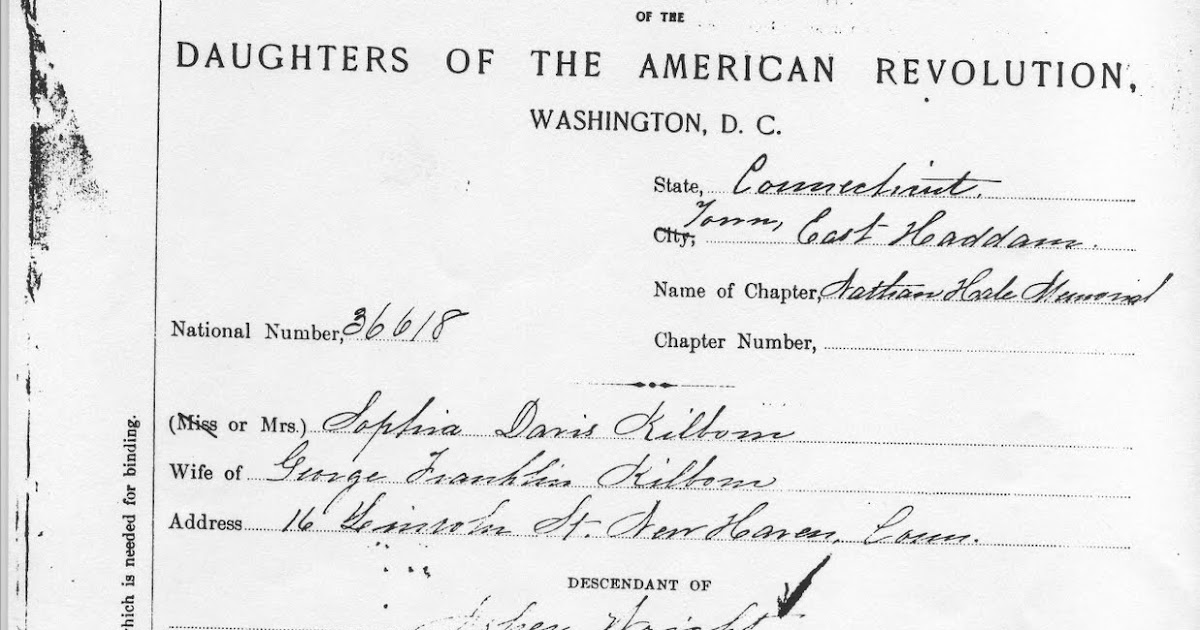 OF THE
DAUGHTERS OF THE AMERICAN REVOLUTION,
WASHINGTON, D. C.
State, Connecticut.
City, Town, East Haddam.
Name of Chapter, Nathan Hale Memorial
National Number, 36618
Chapter Number,
(Miss or Mrs.) Sophia Davis Kilborn
Wife of George Franklin Kilborn
Address 16 Lincoln St. New Haven, Conn.
DESCENDANT OF
Asher Wright
which is needed for binding.